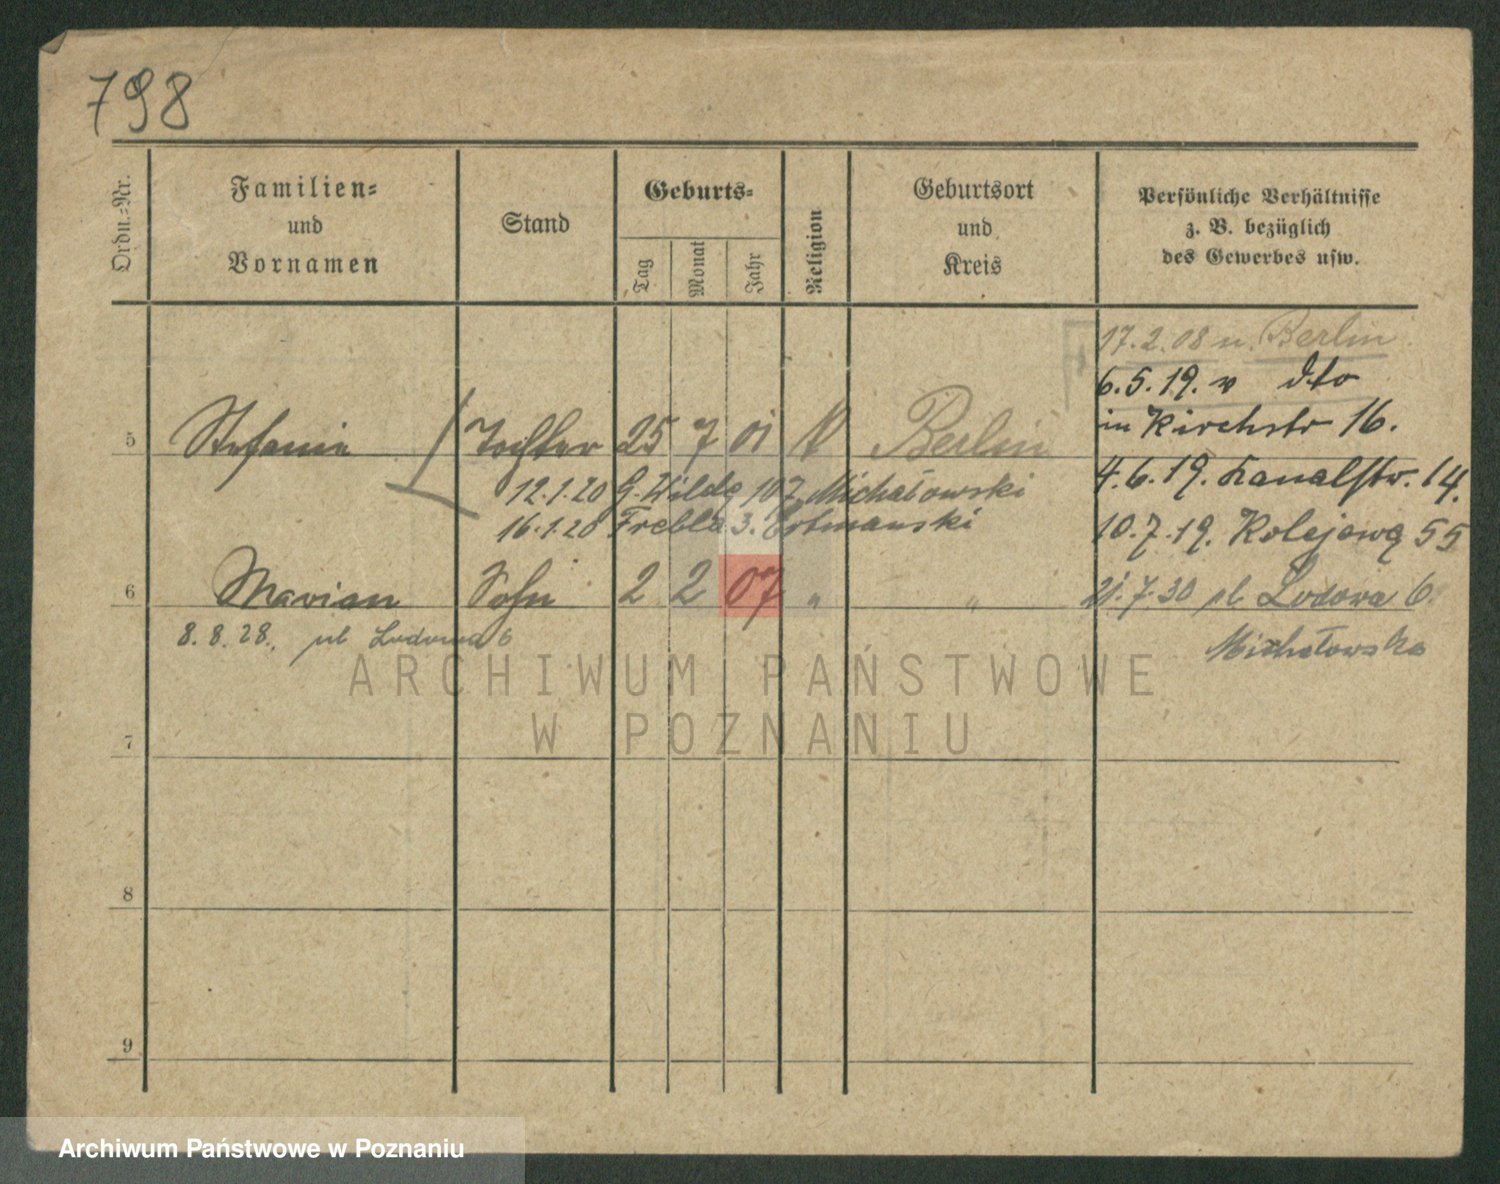 798
Ordn.-Nr.
Familien-
und
Vornamen
Stand
Geburts-
Tag
Monat
Jahr
Religion
Geburtsort
und
Kreis
Persönliche Verhältnisse
z. B. bezüglich
des Gewerbes usw.
17.2.08 u. Berlin
6.5.19. v dto
in Kirchstr 16.
5 Stefanie Tochter 25 7 01 K Berlin
4.6.19. Kanalstr. 14.
12.1.20 G. Wilda 107 Michałowski
16.1.20 Frebla 3. Ertmanski
10.7.19. Kolejowa 55
6 Marian Sohn 2 2 07 " "
21.7.30 pl Lodowa 6
8.8.28., pl Lodowa 6
Michałowska
ARCHIWUM PAŃSTWOWE
W POZNANIU
7
8
9
Archiwum Państwowe w Poznaniu